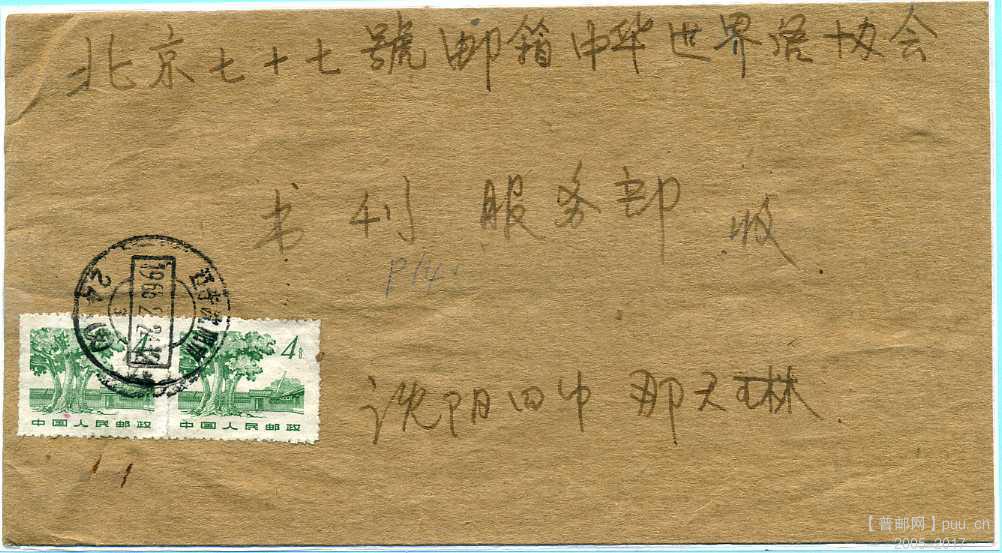 北京七十七號邮箱中华世界语协会
书刊服务部 收
P14
遼宁沈阳
24
1966.2.2
4分
中国人民邮政
中国人民邮政
沈阳四中 那天琳
【普邮网】puu.cn
2005-2017